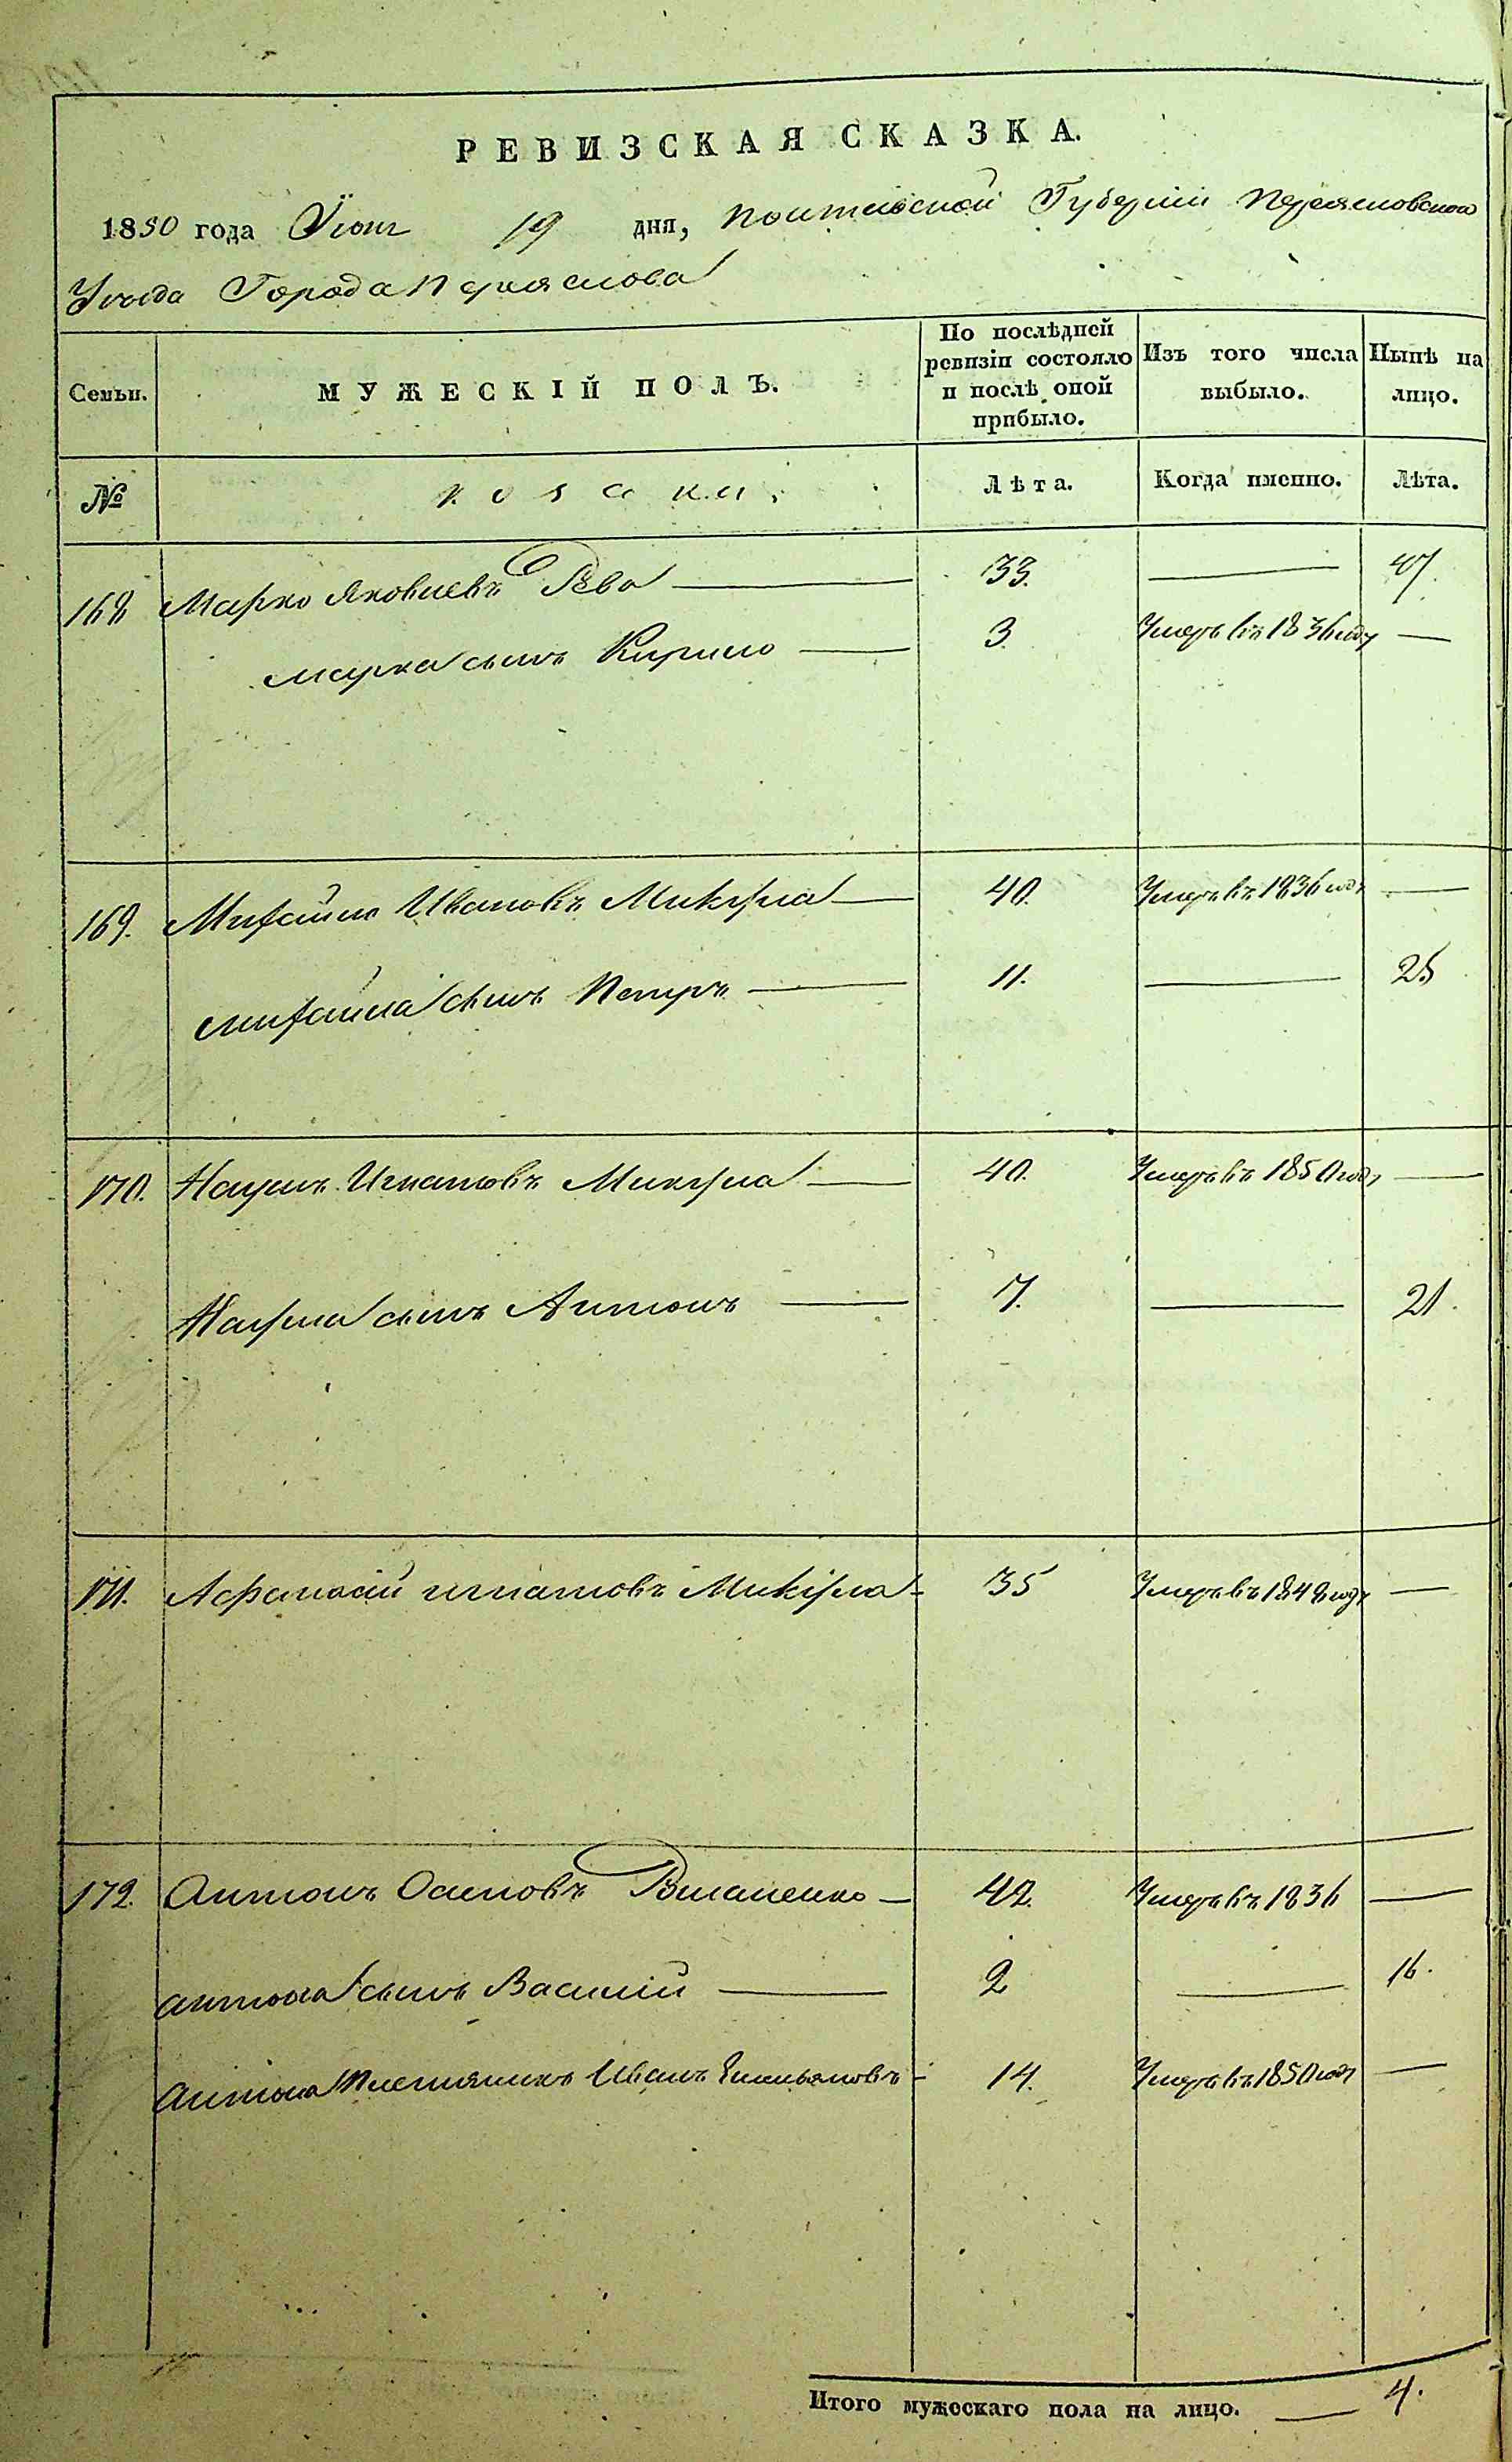 РЕВИЗСКАЯ СКАЗКА.
1850 года Іюня 19 дня, Полтавской Губерніи Переясловскаго
Уѣзда Города Переяслова
Семьи.
МУЖЕСКІЙ ПОЛЪ.
По послѣдней ревизіи состояло и послѣ оной прибыло.
Изъ того числа выбыло.
Нынѣ на лицо.
№
козаки.
Лѣта.
Когда именно.
Лѣта.
168 Марко Яковлевъ Рева 33. 47.
Марка сынъ Кирило 3. Умеръ въ 1836 году
169. Михайло Ивановъ Микула 40. Умеръ въ 1836 году
Михайла сынъ Петръ 11. 25
170. Наумъ Игнатовъ Микула 40. Умеръ въ 1850 году
Наума сынъ Антонъ 7. 21.
171. Афанасій Игнатовъ Микула 35 Умеръ въ 1848 году
172. Антонъ Осиповъ 42. Умеръ въ 1836
Антона сынъ Василій 2 16.
Антона Племянникъ Иванъ Емельяновъ 14. Умеръ въ 1850 году
Итого мужескаго пола на лицо. 4.